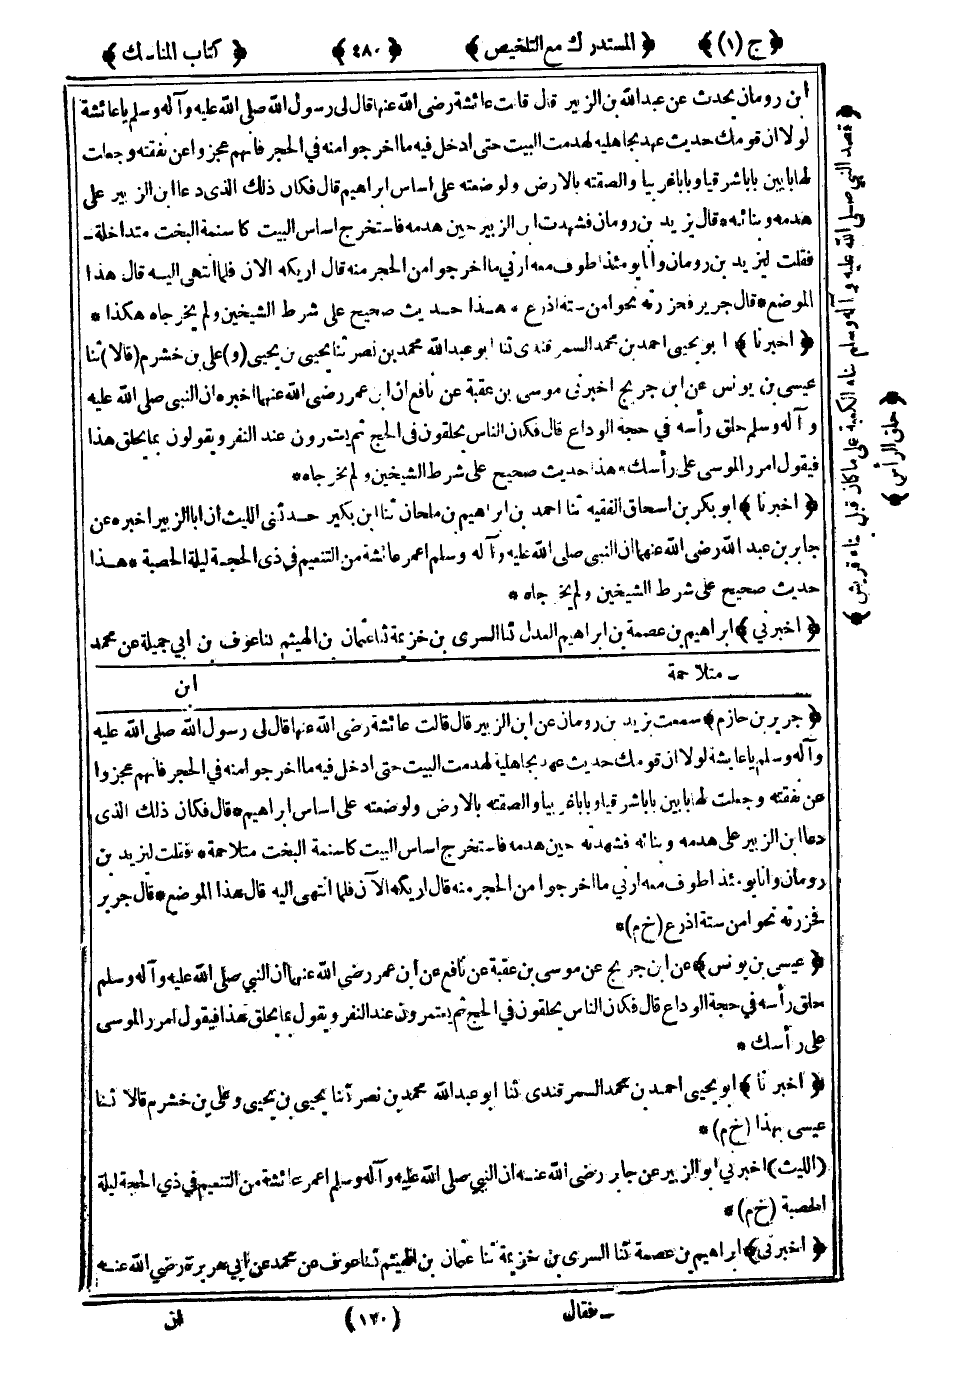 ﴿ ج (١) ﴾ ﴿ المستدرك مع التلخيص ﴾ ﴿ ٤٨٠ ﴾ ﴿ كتاب المناسك ﴾
ابن رومان يحدث عن عبد الله بن الزبير قال قالت عائشة رضى الله عنها قال لى رسول الله صلى الله عليه وآله وسلم يا عائشة
لولا ان قومك حديث عهد بجاهلية لهدمت البيت حتى ادخل فيه ما اخرجوا منه في الحجر فانهم عجزوا عن نفقته وجعلت
لها بابين بابا شرقيا وبابا غربيا والصقته بالارض ولوضعته على اساس ابراهيم قال فكان ذلك الذى دعا ابن الزبير على
هدمه وبنائه * قال يزيد بن رومان فشهدت ابن الزبير حين هدمه فاستخرج اساس البيت كاسنمة البخت متداخلة ـ
فقلت ليزيد بن رومان وانا يومئذ اطوف معه ارني ما اخرجوا من الحجر منه قال اريكه الان فلما انتهى اليه قال هذا
الموضع * قال جرير فحزرته نحوا من ستة اذرع * هذا حديث صحيح على شرط الشيخين ولم يخرجاه هكذا *
﴿ اخبرنا ﴾ ابو يحيى احمد بن محمد السمرقندى ثنا ابو عبد الله محمد بن نصر ثنا يحيى بن يحيى (و) على بن خشرم (قالا) ثنا
عيسى بن يونس عن ابن جريج اخبرنى موسى بن عقبة عن نافع ان ابن عمر رضى الله عنهما اخبره ان النبى صلى الله عليه
وآله وسلم حلق رأسه في حجة الوداع قال فكان الناس يحلقون في الحج ثم يعتمرون عند النفر ويقولون بما يحلق هذا
فيقول امرر الموسى على رأسك * هذا حديث صحيح على شرط الشيخين ولم يخرجاه *
﴿ اخبرنا ﴾ ابو بكر بن اسحاق الفقيه ثنا احمد بن ابراهيم بن ملحان ثنا ابن بكير حدثنى الليث ان ابا الزبير اخبره عن
جابر بن عبد الله رضى الله عنهما ان النبي صلى الله عليه وآله وسلم اعمر عائشة من التنعيم في ذى الحجة ليلة الحصبة * هذا
حديث صحيح على شرط الشيخين ولم يخرجاه *
﴿ اخبرني ﴾ ابراهيم بن عصمة بن ابراهيم العدل ثنا السرى بن خزيمة ثنا عثمان بن الهيثم ثنا عوف بن ابي جميلة عن محمد
ـ متلاحمة
ابن
﴿ جرير بن حازم ﴾ سمعت يزيد بن رومان عن ابن الزبير قال قالت عائشة رضى الله عنها قال لى رسول الله صلى الله عليه
وآله وسلم يا عايشة لولا ان قومك حديث عهد بجاهلية لهدمت البيت حتى ادخل فيه ما اخرجوا منه في الحجر فانهم عجزوا
عن نفقته وجعلت لها بابين بابا شرقيا وبابا غربيا والصقته بالارض ولوضعته على اساس ابراهيم * قال فكان ذلك الذى
دعا ابن الزبير على هدمه وبنائه فشهدته حين هدمه فاستخرج اساس البيت كاسنمة البخت متلاحمة * فقلت ليزيد بن
رومان وانا يومئذ اطوف معه ارني ما اخرجوا من الحجر منه قال اريكه الآن فلما انتهى اليه قال هذا الموضع * قال جرير
فحزرته نحوا من ستة اذرع (خ م) *
﴿ عيسى بن يونس ﴾ عن ابن جريج عن موسى بن عقبة عن نافع عن ابن عمر رضى الله عنهما ان النبي صلى الله عليه وآله وسلم
حلق رأسه في حجة الوداع قال فكان الناس يحلقون في الحج ثم يعتمرون عند النفر ويقول بما يحلق هذا فيقول امرر الموسى
على رأسك *
﴿ اخبرنا ﴾ ابو يحيى احمد بن محمد السمرقندى ثنا ابو عبد الله محمد بن نصر ثنا يحيى بن يحيى وعلى بن خشرم قالا ثنا
عيسى بهذا (خ م) *
(الليث) اخبرني ابو الزبير عن جابر رضى الله عنه ان النبي صلى الله عليه وآله وسلم اعمر عائشة من التنعيم في ذي الحجة ليلة
الحصبة (خ م) *
﴿ اخبرني ﴾ ابراهيم بن عصمة ثنا السرى بن خزيمة ثنا عثمان بن الهيثم ثنا عوف عن محمد عن ابي هريرة رضي الله عنه
ـ فقال
(١٢٠)
ان
﴿ قصد النبي صلى الله عليه وآله وسلم بناء الكعبة على ما كان قبل بناء قريش ﴾
﴿ حلق الرأس ﴾